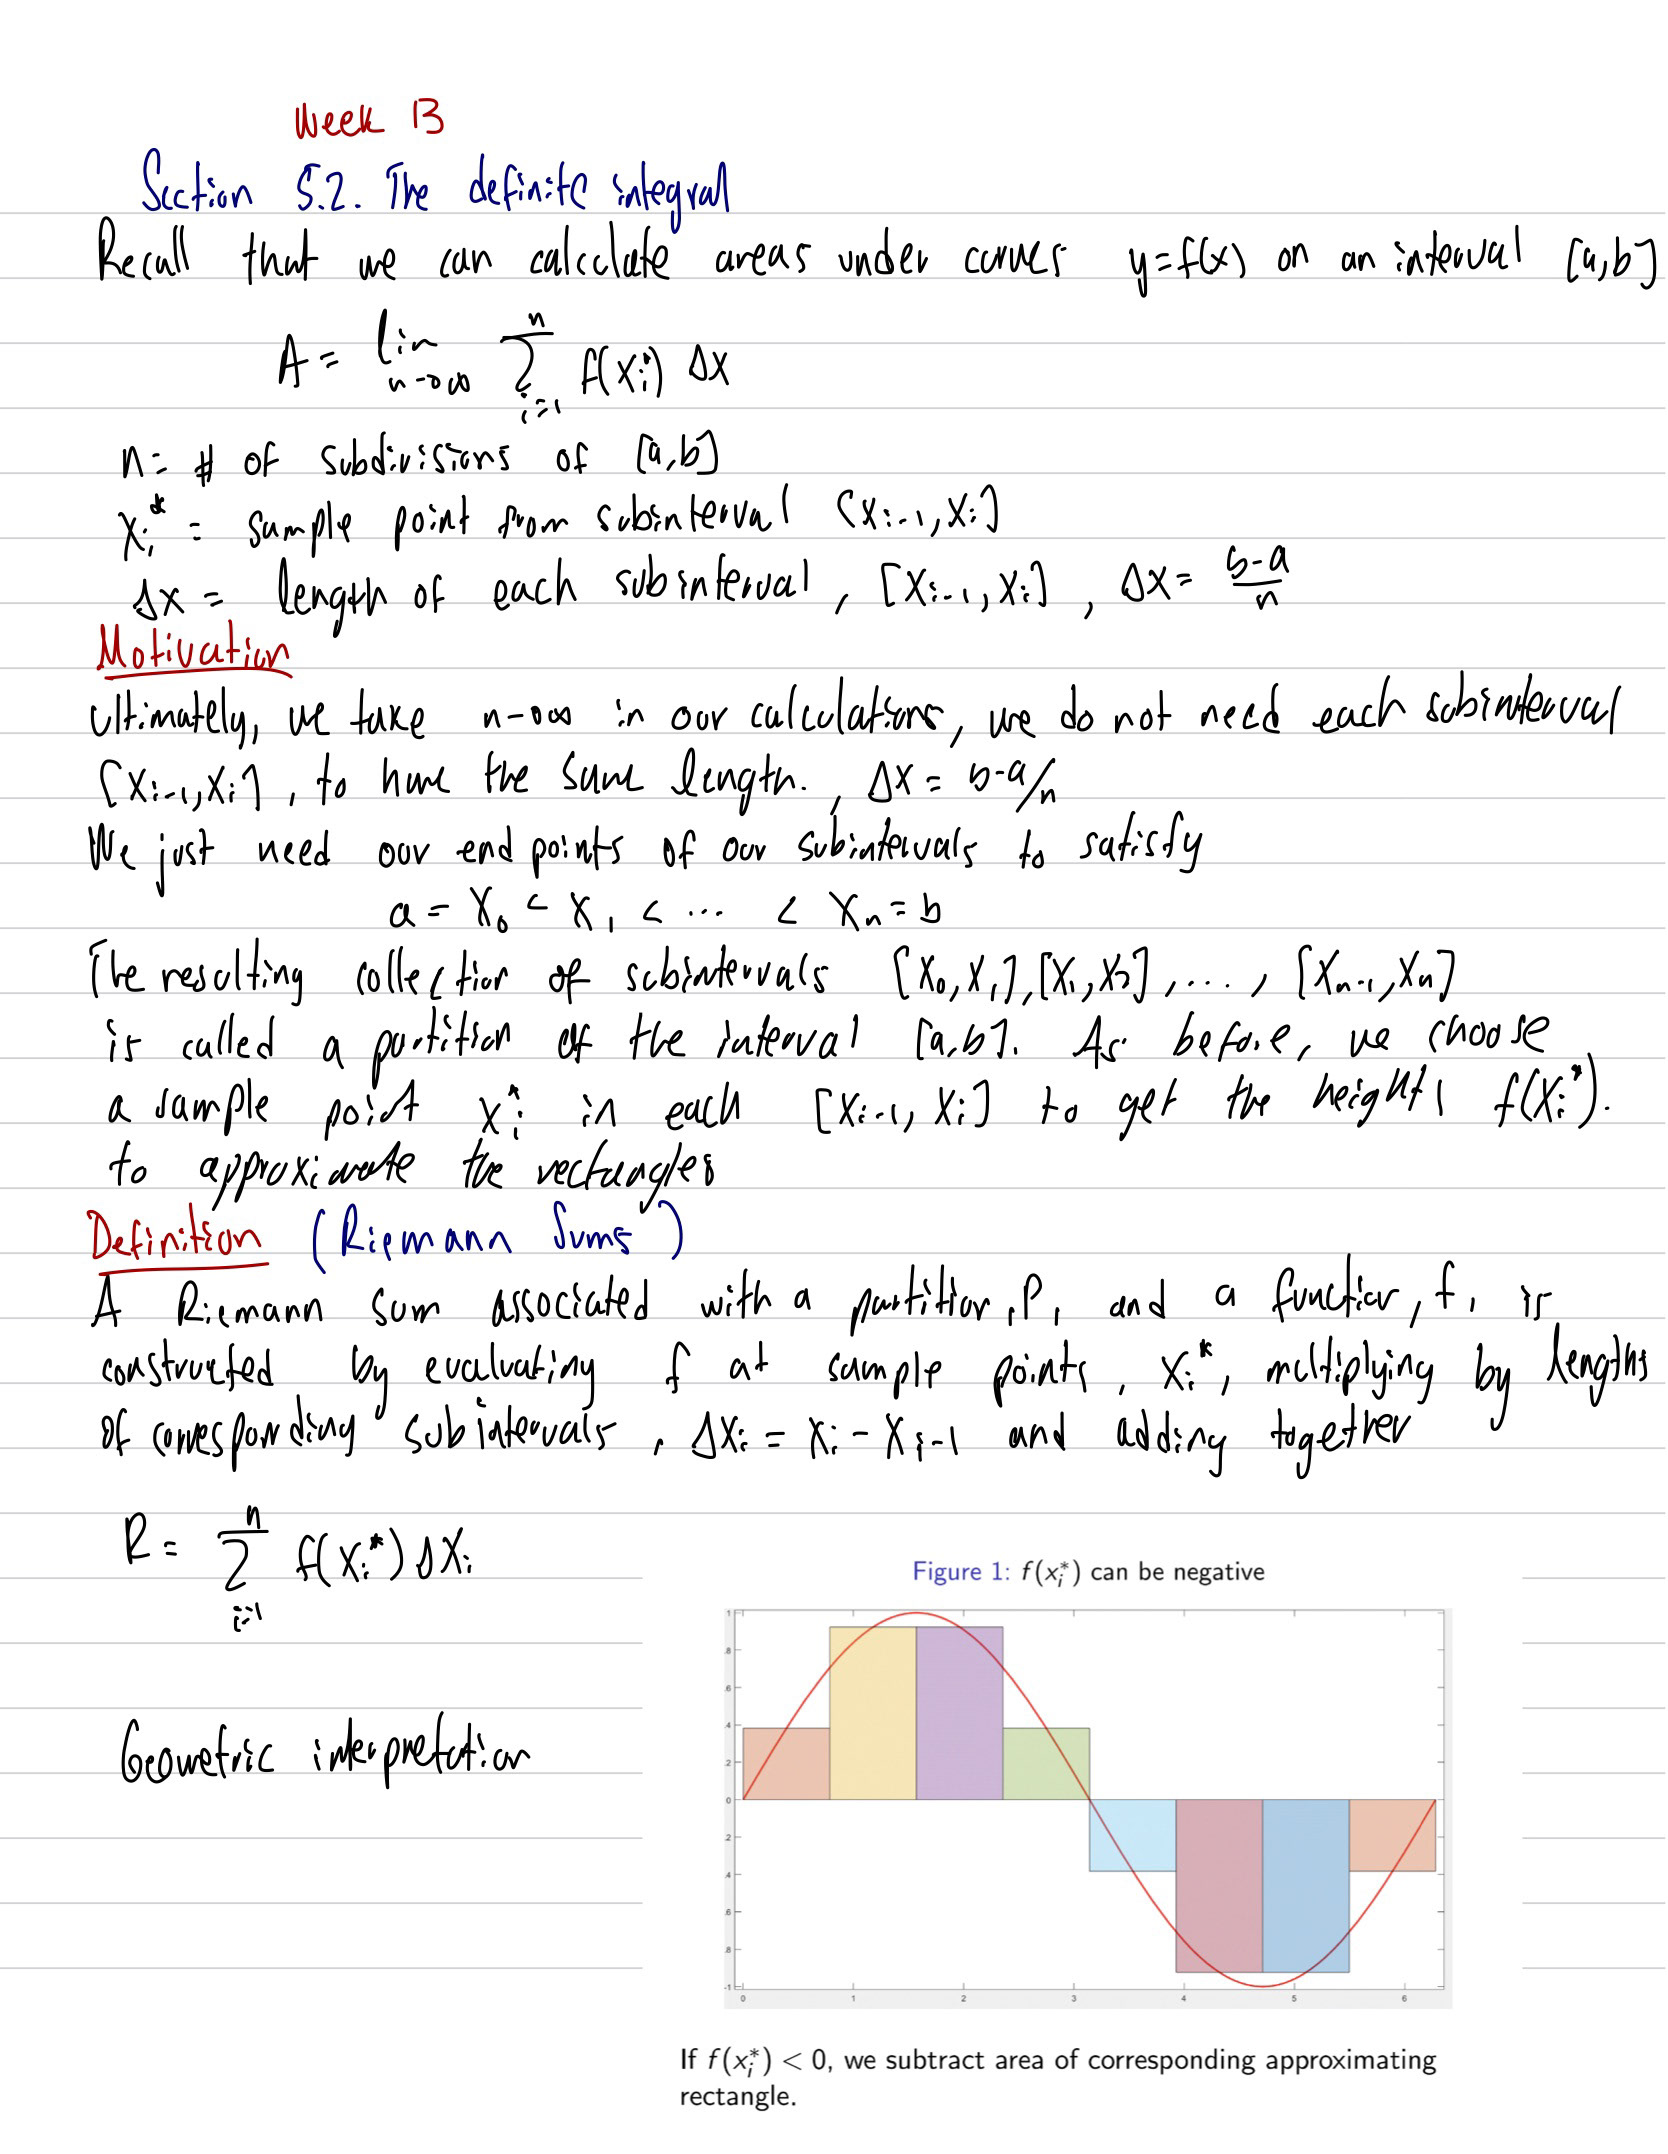 Week 13
Section 5.2. The definite integral
Recall that we can calculate areas under curves y=f(x) on an interval [a,b]
A = lim n→∞ Σ i=1 n f(xᵢ*) Δx
n = # of subdivisions of [a,b]
xᵢ* = sample point from subinterval [xᵢ₋₁, xᵢ]
Δx = length of each subinterval, [xᵢ₋₁, xᵢ], Δx = b-a/n
Motivation
Ultimately, we take n→∞ in our calculations, we do not need each subinterval
[xᵢ₋₁, xᵢ], to have the same length., Δx = b-a/n
We just need our end points of our subintervals to satisfy
a = x₀ < x₁ < ... < xₙ = b
The resulting collection of subintervals [x₀, x₁], [x₁, x₂], ..., [xₙ₋₁, xₙ]
is called a partition of the interval [a,b]. As before, we choose
a sample point xᵢ* in each [xᵢ₋₁, xᵢ] to get the height, f(xᵢ*).
to approximate the rectangles
Definition (Riemann Sums)
A Riemann sum associated with a partition, P, and a function, f, is
constructed by evaluating f at sample points, xᵢ*, multiplying by lengths
of corresponding subintervals, Δxᵢ = xᵢ - xᵢ₋₁ and adding together
R = Σ i=1 n f(xᵢ*) Δxᵢ
Figure 1: f(xᵢ*) can be negative
1
.8
.6
.4
.2
0
.2
.4
.6
.8
-1
0 1 2 3 4 5 6
Geometric interpretation
If f(xᵢ*) < 0, we subtract area of corresponding approximating
rectangle.